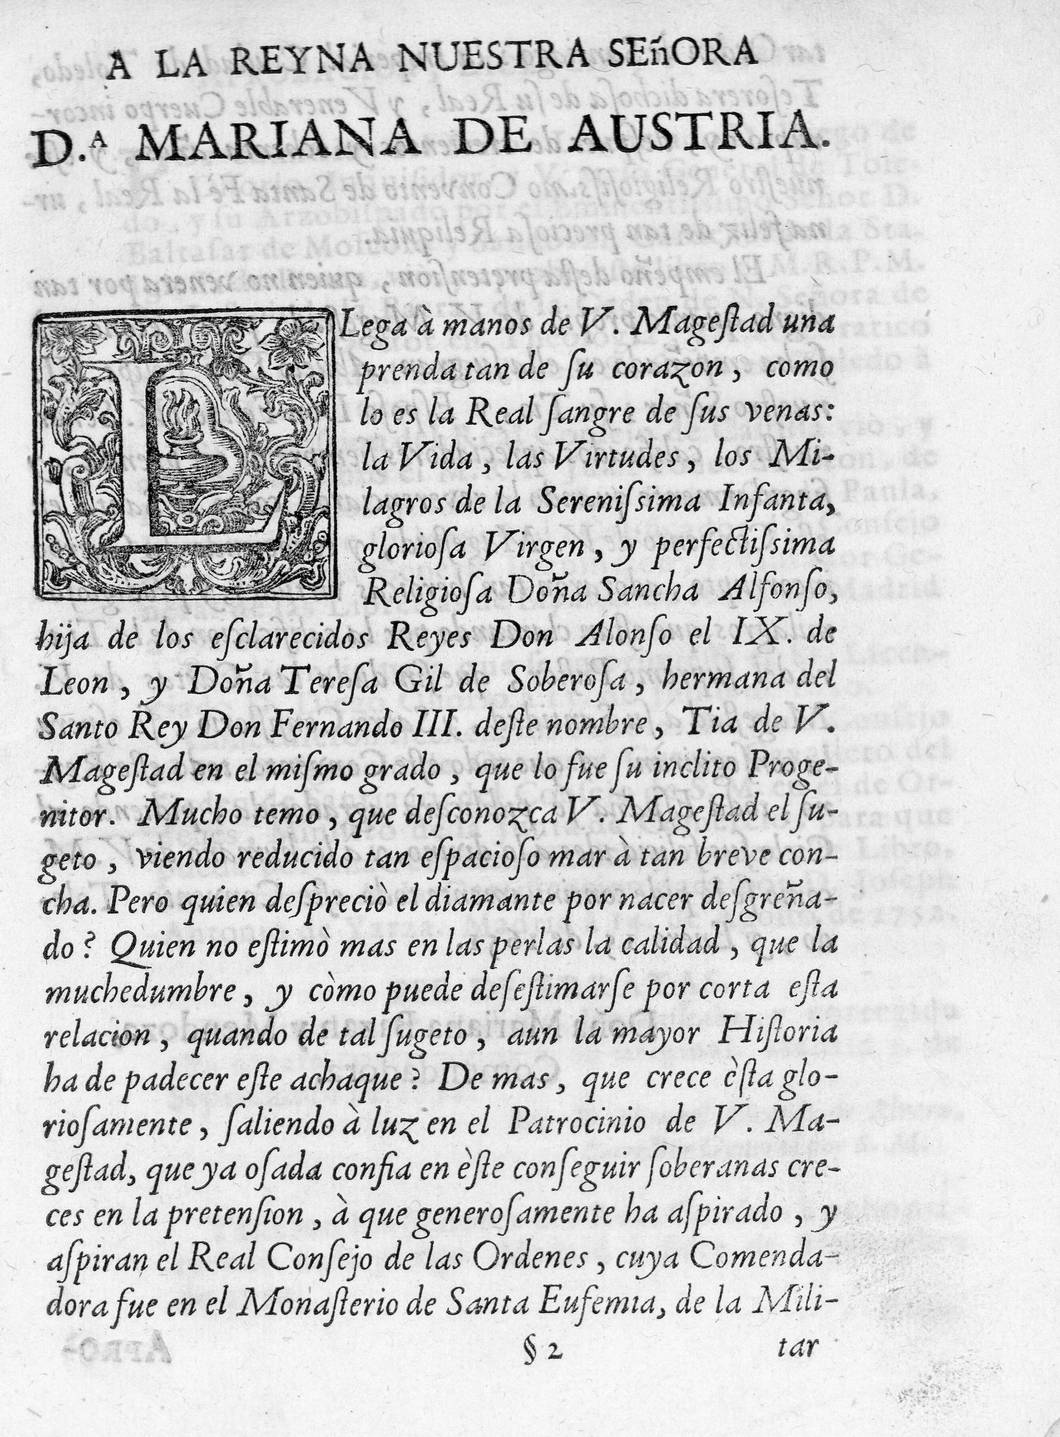 A LA REYNA NUESTRA SEñORA
D.ᴬ MARIANA DE AUSTRIA.
LLega à manos de V. Mageſtad una
prenda tan de ſu corazon, como
lo es la Real ſangre de ſus venas:
la Vida, las Virtudes, los Mi-
lagros de la Sereniſsima Infanta,
glorioſa Virgen, y perfectiſsima
Religioſa Doña Sancha Alfonſo,
hija de los eſclarecidos Reyes Don Alonſo el IX. de
Leon, y Doña Tereſa Gil de Soberoſa, hermana del
Santo Rey Don Fernando III. deſte nombre, Tia de V.
Mageſtad en el miſmo grado, que lo fue ſu inclito Proge-
nitor. Mucho temo, que deſconozca V. Mageſtad el ſu-
geto, viendo reducido tan eſpacioſo mar à tan breve con-
cha. Pero quien deſpreciò el diamante por nacer deſgreña-
do? Quien no eſtimò mas en las perlas la calidad, que la
muchedumbre, y còmo puede deſeſtimarſe por corta eſta
relacion, quando de tal ſugeto, aun la mayor Hiſtoria
ha de padecer eſte achaque? De mas, que crece èſta glo-
rioſamente, ſaliendo à luz en el Patrocinio de V. Ma-
geſtad, que ya oſada confia en èſte conſeguir ſoberanas cre-
ces en la pretenſion, à que generoſamente ha aſpirado, y
aſpiran el Real Conſejo de las Ordenes, cuya Comenda-
dora fue en el Monaſterio de Santa Eufemia, de la Mili-
§ 2 tar